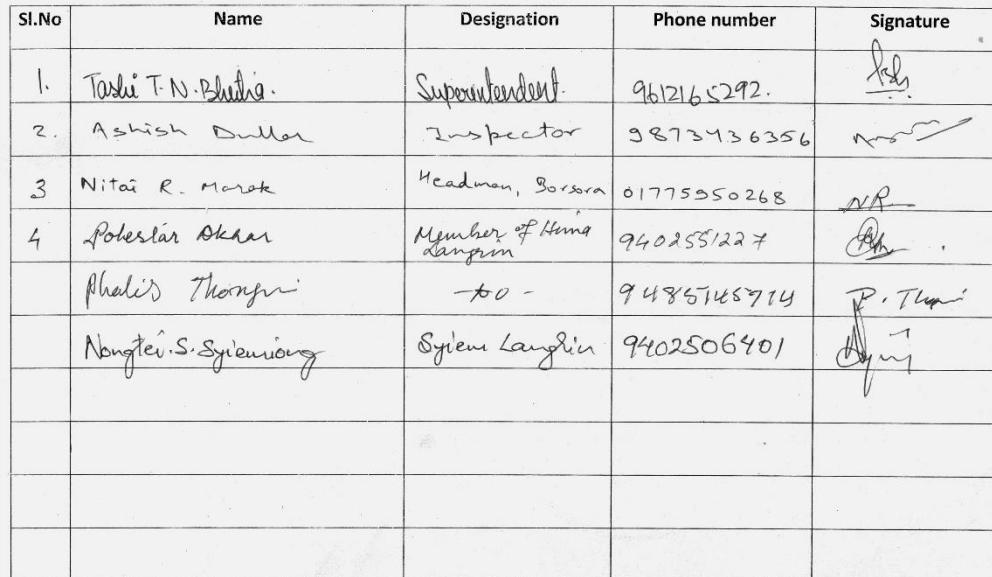 Sl.No Name Designation Phone number Signature
1. Tashi T.N. Bhutia. Superintendent. 9612165292.
2. Ashish Dullar Inspector 9873436356
3 Nitai R. Marak Headman, Borsora 01775950268 NR
4 Polestar Dkhar Member of Hima Langrin 9402551227
Phalis Thongni -do- 9485145714 P. Thgni
Nongtei.S.Syiemiong Syiem Langrin 9402506401